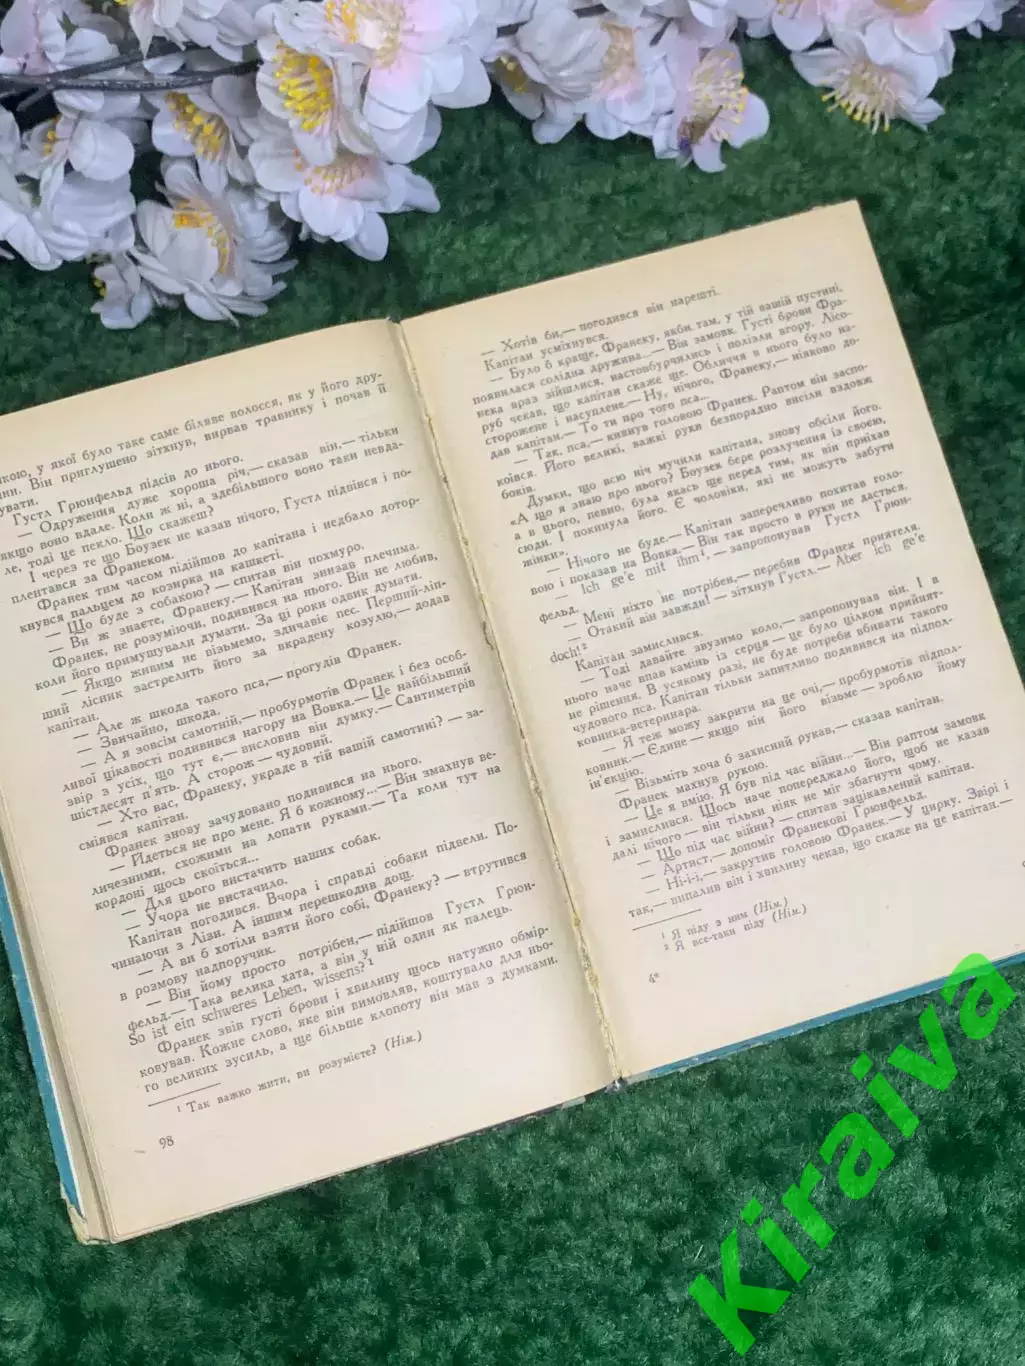 кою, у якої було таке саме біляве волосся, як у його дру-
ни. Він приглушено зітхнув, вирвав травинку і почав її
увати.
Густл Грюнфельд підсів до нього.
— Одруження дуже хороша річ,— сказав він,— тільки
якщо воно вдале. Коли ж ні, а здебільшого воно таки невда-
ле, тоді це пекло. Що скажеш?
І через те що Боузек не казав нічого, Густл підвівся і по-
плентався за Франеком.
Франек тим часом підійшов до капітана і недбало дотор-
кнувся пальцем до козирка на кашкеті.
— Що буде з собакою? — спитав він похмуро.
— Ви ж знаєте, Франеку,— Капітан знизав плечима.
Франек, не розуміючи, подивився на нього. Він не любив,
коли його примушували думати. За ці роки одвик думати.
— Якщо живим не візьмемо, здичавіє пес. Перший-ліп-
ший лісник застрелить його за вкрадену козулю,— додав
капітан.
— Але ж шкода такого пса,— прогудів Франек.
— Звичайно, шкода.
— А я зовсім самотній,— пробурмотів Франек і без особ-
ливої цікавості подивився нагору на Вовка.— Це найбільший
звір з усіх, що тут є,— висловив він думку.— Сантиметрів
шістдесят п'ять. А сторож — чудовий.
— Хто вас, Франеку, украде в тій вашій самотині? — за-
сміявся капітан.
Франек знову зачудовано подивився на нього.
— Йдеться не про мене. Я б кожному...— Він змахнув ве-
личезними, схожими на лопати руками.— Та коли тут на
кордоні щось скоїться...
— Для цього вистачить наших собак.
— Учора не вистачило.
Капітан погодився. Вчора і справді собаки підвели. По-
чинаючи з Лізи. А іншим перешкодив дощ.
— А ви б хотіли взяти його собі, Франеку? — втрутився
в розмову надпоручик.
— Він йому просто потрібен,— підійшов Густл Грюн-
фельд.— Така велика хата, а він у ній один як палець.
So ist ein schweres Leben, wissens? 1
Франек звів густі брови і хвилину щось натужно обмір-
ковував. Кожне слово, яке він вимовляв, коштувало для ньо-
го великих зусиль, а ще більше клопоту він мав з думками.
1 Так важко жити, ви розумієте? (Нім.)
98
— Хотів би,— погодився він нарешті.
Капітан усміхнувся.
— Було б краще, Франеку, якби там, у тій вашій пустині,
появилася солідна дружина...— Він замовк. Густі брови Фра-
нека враз зійшлися, настовбурчились і полізли вгору. Лісо-
руб чекав, що капітан скаже ще. Обличчя в нього було на-
сторожене і насуплене.— Ну, нічого, Франеку,— ніяково до-
дав капітан.— То ти про того пса...
— Так, пса,— кивнув головою Франек. Раптом він заспо-
коївся. Його великі, важкі руки безпорадно висіли вздовж
боків.
Думки, що всю ніч мучили капітана, знову обсіли його.
«А що я знаю про нього? Боузек бере розлучення із своєю,
а в цього, певно, була якась ще перед тим, як він приїхав
сюди. І покинула його. Є чоловіки, які не можуть забути
жінки».
— Нічого не буде.— Капітан заперечливо похитав голо-
вою і показав на Вовка.— Він так просто в руки не дасться.
— Ich ge'e mit ihm 1,— запропонував Густл Грюн-
фельд.
— Мені ніхто не потрібен,— перебив Франек приятеля.
— Отакий він завжди! — зітхнув Густл.— Aber ich ge'e
doch! 2
Капітан замислився.
— Тоді давайте звузимо коло,— запропонував він. І в
нього наче впав камінь із серця — це було цілком прийнят-
не рішення. В усякому разі, не буде потреби вбивати такого
чудового пса. Капітан тільки запитливо подивився на підпол-
ковника-ветеринара.
— Я теж можу закрити на це очі,— пробурмотів підпол-
ковник.— Єдине — якщо він його візьме — зроблю йому
ін'єкцію.
— Візьміть хоча б захисний рукав,— сказав капітан.
Франек махнув рукою.
— Це я вмію. Я був під час війни...— Він раптом замовк
і замислився. Щось наче попереджало його, щоб не казав
далі нічого — він тільки ніяк не міг збагнути чому.
— Що під час війни? — спитав зацікавлений капітан.
— Артист,— допоміг Франекові Грюнфельд.
— Ні-і-і,— закрутив головою Франек.— У цирку. Звірі і
так,— випалив він і хвилину чекав, що скаже на це капітан.—
1 Я піду з ним (Нім.)
2 Я все-таки піду (Нім.)
4*
Kiraiva